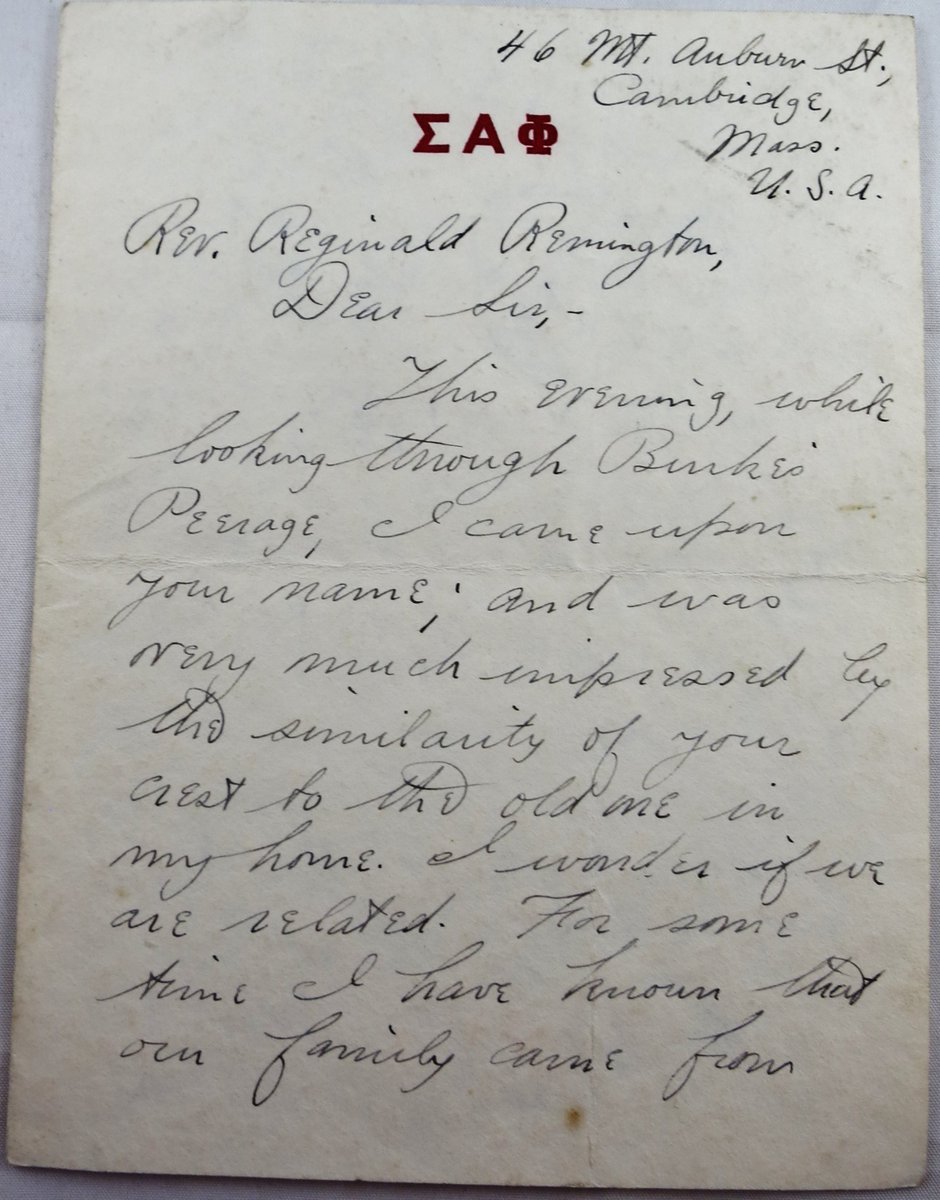 46 Mt. Auburn St.,
Cambridge,
ΣΑΦ
Mass.
U. S. A.
Rev. Reginald Remington,
Dear Sir,-
This evening, while
looking through Burke's
Peerage, I came upon
your name; and was
very much impressed by
the similarity of your
crest to the old one in
my home. I wonder if we
are related. For some
time I have known that
our family came from